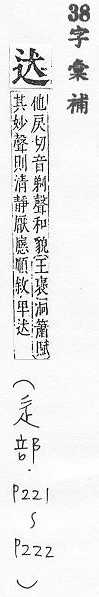 38字彙補
迖
他戾切音剃聲和貌王褒洞簫賦
其妙聲則清靜厭應順敘卑迖
(辵部．P221~P222)